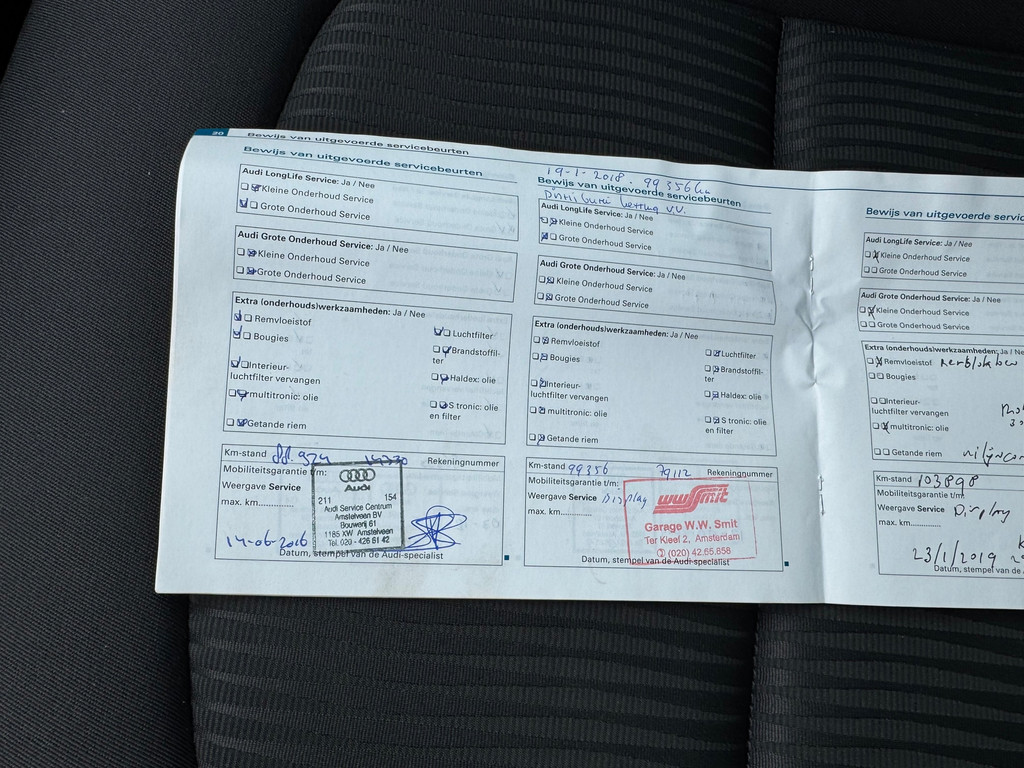 20 Bewijs van uitgevoerde servicebeurten
Bewijs van uitgevoerde servicebeurten
Audi LongLife Service: Ja / Nee
Kleine Onderhoud Service
Grote Onderhoud Service
Audi Grote Onderhoud Service: Ja / Nee
Kleine Onderhoud Service
Grote Onderhoud Service
Extra (onderhouds)werkzaamheden: Ja / Nee
Remvloeistof
Luchtfilter
Bougies
Brandstoffil-
ter
Interieur-
luchtfilter vervangen
Haldex: olie
multitronic: olie
S tronic: olie
en filter
Getande riem
Km-stand
Rekeningnummer
Mobiliteitsgarantie t/m:
Weergave Service
max. km..............
Audi
211 154
Audi Service Centrum
Amstelveen BV
Bouwerij 61
1185 XW Amstelveen
Tel. 020 - 426 61 42
14-06-2016
Datum, stempel van de Audi-specialist
19-1-2018. 99356 km
Bewijs van uitgevoerde servicebeurten
Audi LongLife Service: Ja / Nee
Kleine Onderhoud Service
Grote Onderhoud Service
Audi Grote Onderhoud Service: Ja / Nee
Kleine Onderhoud Service
Grote Onderhoud Service
Extra (onderhouds)werkzaamheden: Ja / Nee
Remvloeistof
Luchtfilter
Bougies
Brandstoffil-
ter
Interieur-
luchtfilter vervangen
Haldex: olie
multitronic: olie
S tronic: olie
en filter
Getande riem
Km-stand 99356 79112 Rekeningnummer
Mobiliteitsgarantie t/m:
Weergave Service Display
max. km..............
ww Smit
Garage W.W. Smit
Ter Kleef 2, Amsterdam
(020) 42.65.858
Datum, stempel van de Audi-specialist
Bewijs van uitgevoerde servic
Audi LongLife Service: Ja / Nee
Kleine Onderhoud Service
Grote Onderhoud Service
Audi Grote Onderhoud Service: Ja / Nee
Kleine Onderhoud Service
Grote Onderhoud Service
Extra (onderhouds)werkzaamheden: Ja / Ne
Remvloeistof
Bougies
Interieur-
luchtfilter vervangen
multitronic: olie
Getande riem
Km-stand 103898
Mobiliteitsgarantie t/m:
Weergave Service Display
max. km..............
23/1/2019
Datum, stempel van de